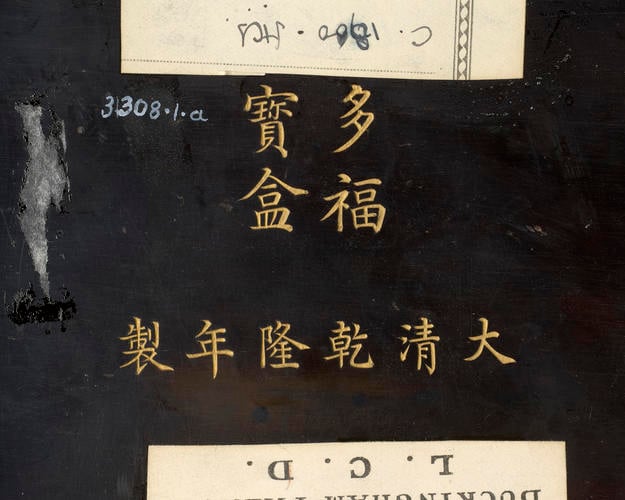 C. 1800.
3308.1.a
多福
寶盒
大清乾隆年製
L. C. D.
BUCKINGHAM